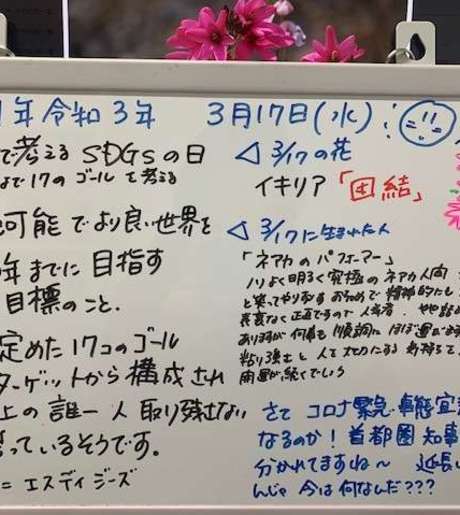 1年 令和3年 3月17日(水)
で考える SDGsの日
なで17の ゴールを考える
可能でより良い世界を
年までに目指す
目標のこと.
定めた17コのゴール
ターゲットから構成され
上の誰一人取り残さない
っているそうです.
= エスディジーズ
◁ 3/17の花
イキリア「団結」
◁ 3/17に生まれた人
「ネアカのパフォーマー」
ノリよく明るく究極のネアカ人間
と笑ってやりすごす 精神的
表裏なく正直ですので人気者.
ありますが何事も順調にほぼ
粘り強さと人を大切にする気持
開運が続くでしょう
さて コロナ緊急事態宣
なるのか! 首都圏知事
分かれてますね〜 延長
んじゃ 今は何なんだ???